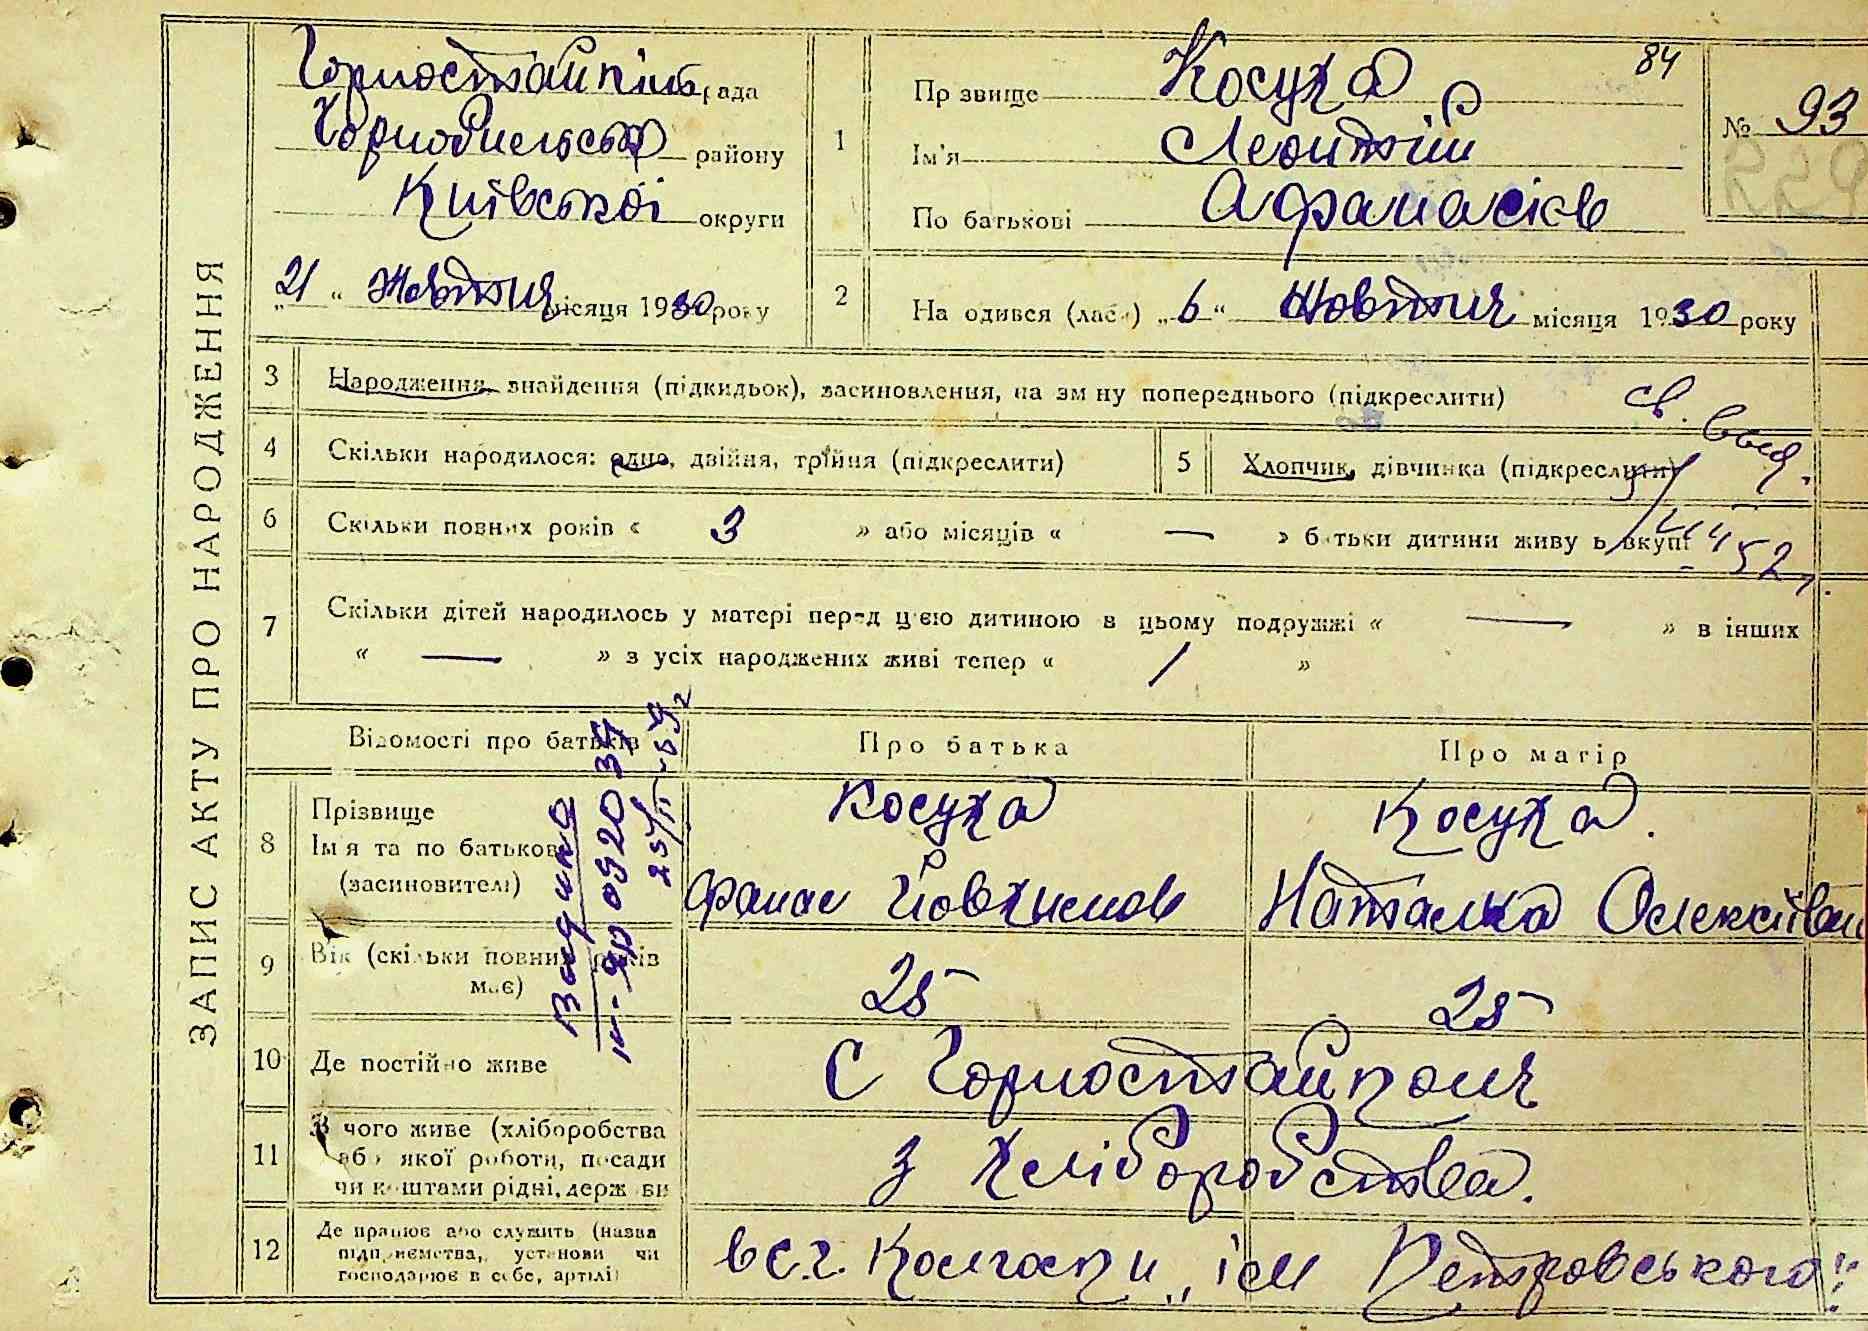 ЗАПИС АКТУ ПРО НАРОДЖЕННЯ
Горностайпіль рада
Чорнобильськ району
Київської округи
„21“ Жовтня місяця 1930 року
1
Пр звище Косуха
84
Ім'я Леонтій
По батькові Афанасієв
№ 93
2
На одився (лась) „6“ Жовтня місяця 1930 року
3 Народження, знайдення (підкидьок), засиновлення, на зм ну попереднього (підкреслити)
св. выд.
4 Скільки народилося: одно, двійня, трійня (підкреслити)
5 Хлопчик, дівчинка (підкреслити)
6 Скільки повних років « 3 » або місяців « — » б тьки дитини живу ь вкупі
52
7 Скільки дітей народилось у матері перед ц'єю дитиною в цьому подружжі « — » в інших
« — » з усіх народжених живі тепер « 1 »
Відомості про батьків
Про батька
Про матір
8 Прізвище
Ім я та по батькові
(засиновителі)
Косуха
Фанас Йовхимов
Косуха.
Наталка Олексіївна
9 Вік (скільки повних років
має)
25
25
10 Де постійно живе
С Горностайполя
11 З чого живе (хліборобства
або якої роботи, посади
чи коштами рідні, держ ви
з Хліборобства.
12 Де працює або служить (назва
підп иємства, установи чи
господарює в себе, артілі)
в с.г. Колгосп и „ім Петровського"